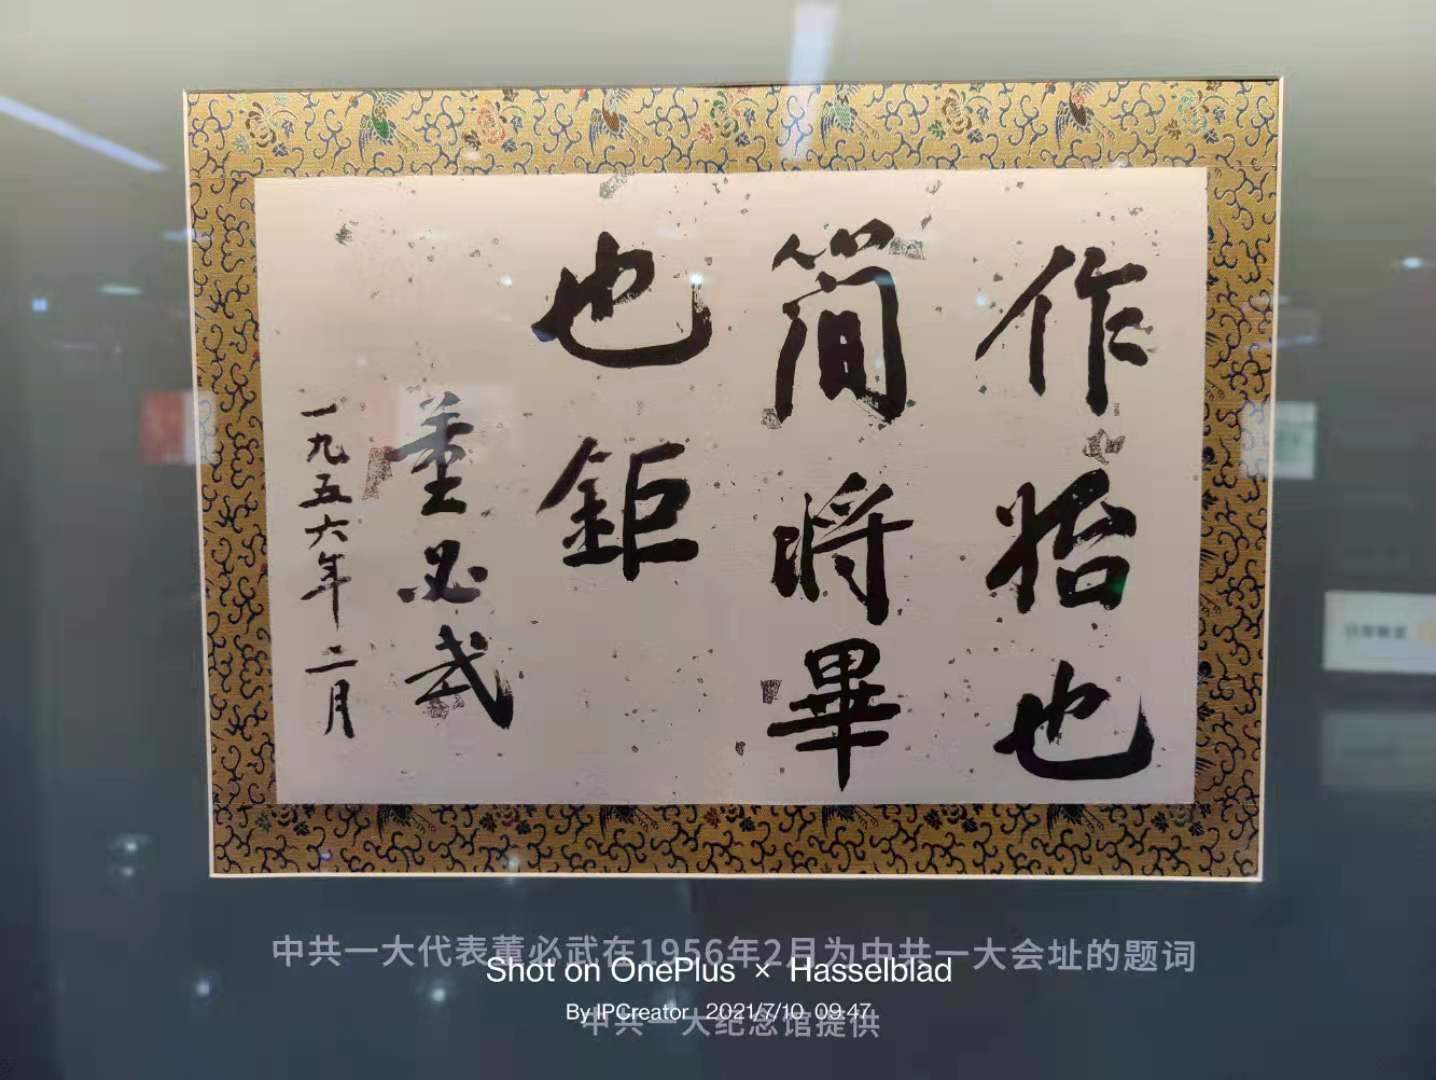 作始也
簡將畢
也鉅
董必武
一九五六年二月
中共一大代表董必武在1956年2月为中共一大会址的题词
Shot on OnePlus × Hasselblad
By IPCreator 2021/7/10 09:47
中共一大纪念馆提供